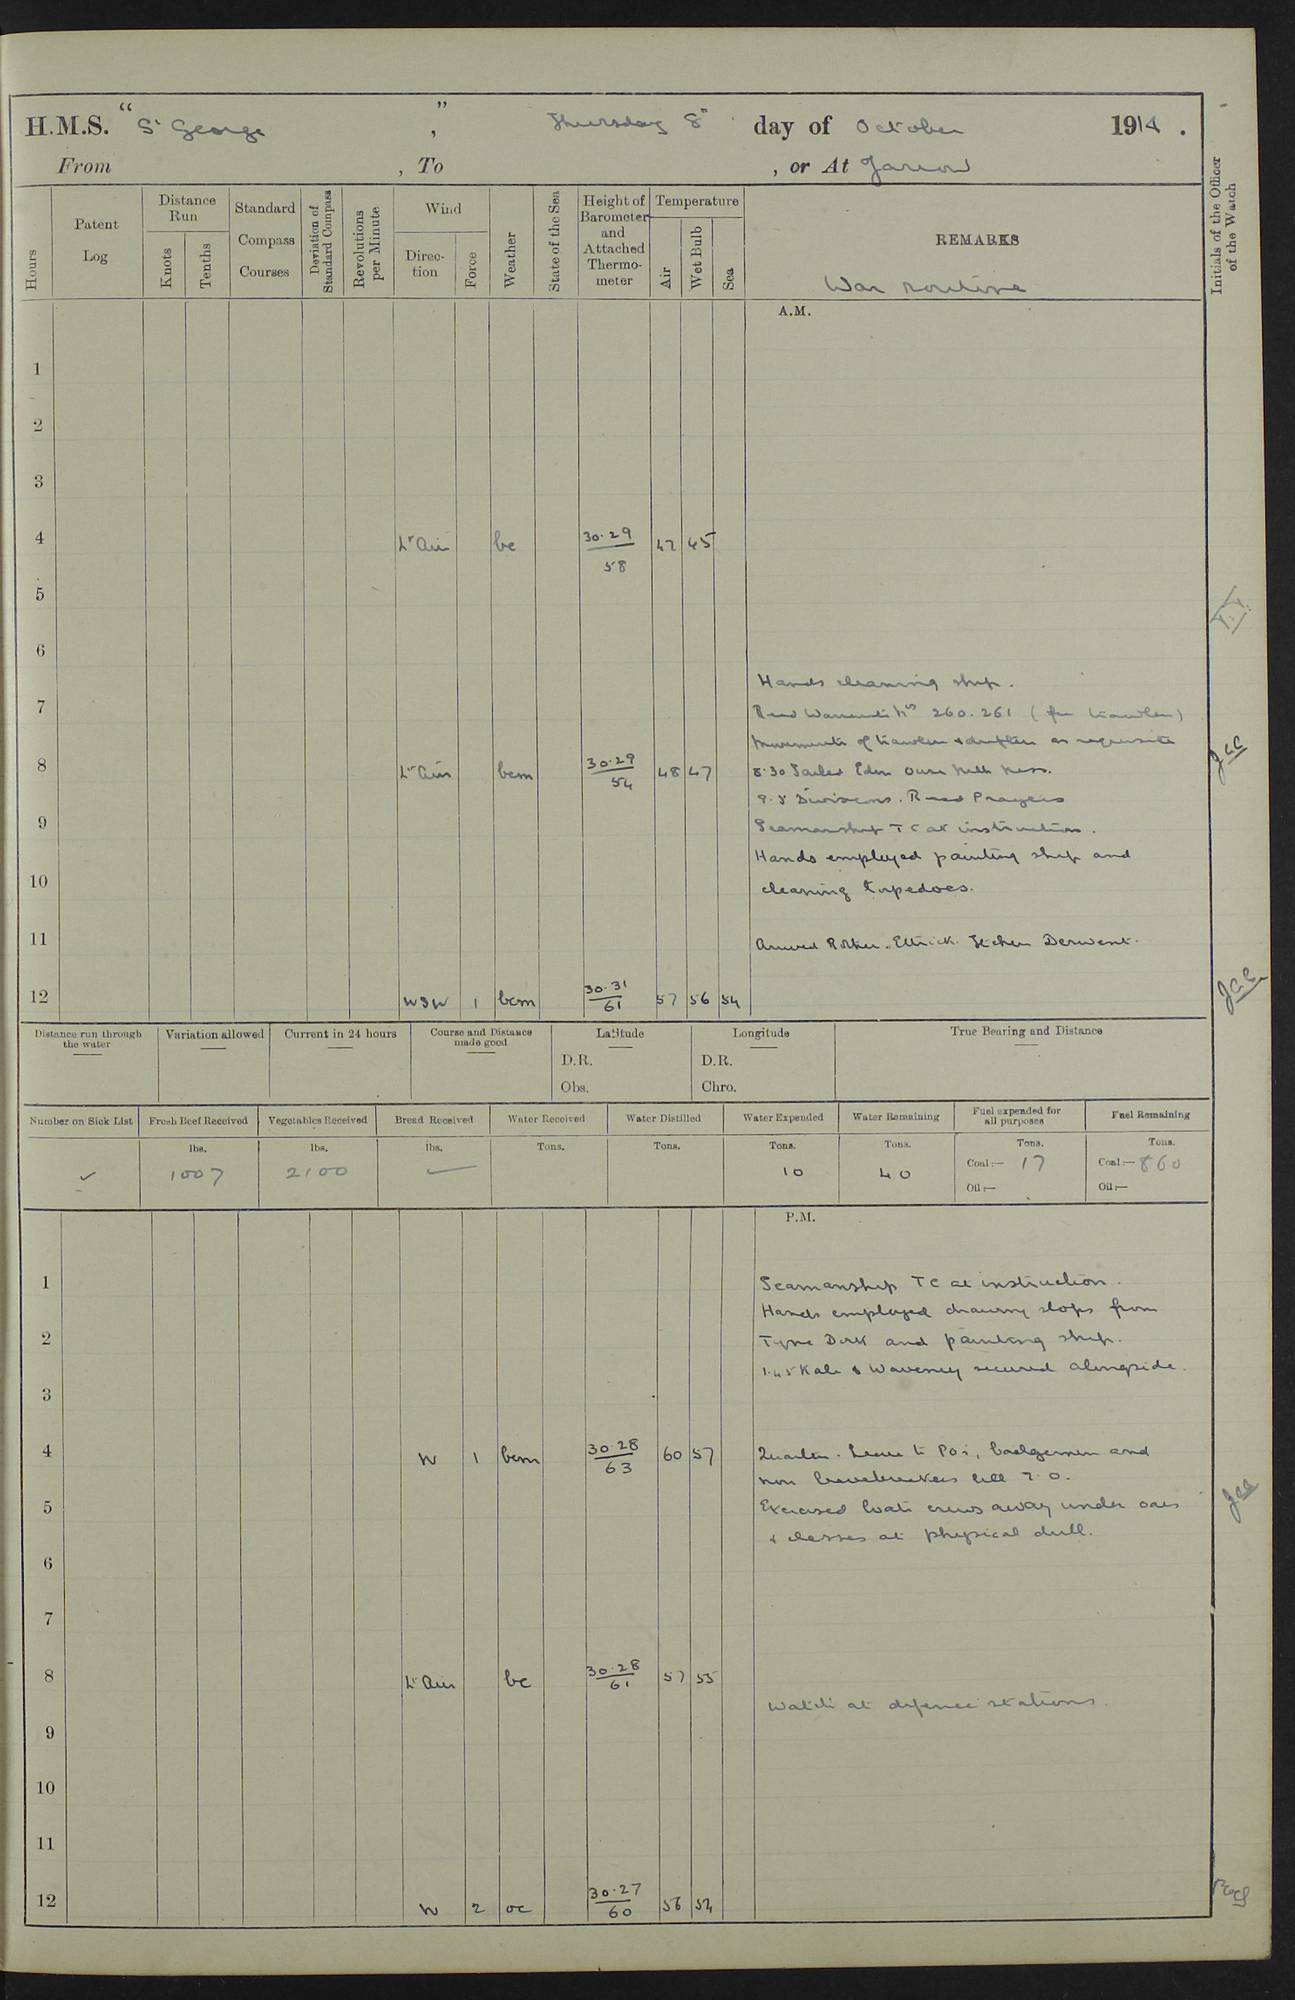 H.M.S. "St George", Thursday 8th day of October 1914.
From , To , or At Jarrow
Hours
Patent Log
Distance Run
Knots
Tenths
Standard Compass Courses
Deviation of Standard Compass
Revolutions per Minute
Wind
Direction
Force
Weather
State of the Sea
Height of Barometer and Attached Thermometer
Temperature
Air
Wet Bulb
Sea
REMARKS
War routine
Initials of the Officer of the Watch
A.M.
1
2
3
4 Lt Air bc 30.29 58 47 45
5
6
Hands cleaning ship.
7
Read Warrants Nos 260. 261 (for trawlers)
Movements of trawlers & drifters as requisite
8 Lt Air bcm 30.29 54 48 47
8.30 Sailed Eden Ouse Kale Ness.
9.5 Divisions. Read Prayers
9
Seamanship TC at instruction.
Hands employed painting ship and
10
cleaning torpedoes.
11
Arrived Rother. Ettrick. Itchen Derwent.
12 WSW 1 bcm 30.31 61 57 56 54
Distance run through the water
Variation allowed
Current in 24 hours
Course and Distance made good
Latitude
D.R.
Obs.
Longitude
D.R.
Chro.
True Bearing and Distance
Number on Sick List
Fresh Beef Received
Vegetables Received
Bread Received
Water Received
Water Distilled
Water Expended
Water Remaining
Fuel expended for all purposes
Fuel Remaining
lbs. lbs. lbs. Tons. Tons. Tons. Tons. Tons. Tons.
✓ 1007 2100 — 10 40 Coal:— 17 Coal:— 860
Oil:— Oil:—
P.M.
1
Seamanship TC at instruction.
Hands employed drawing slops from
2
Tyne Dock and painting ship.
1.45 Kale & Waveney secured alongside.
3
4 W 1 bcm 30.28 63 60 57
Quarters. Leave to POs, badgemen and
non leavebreakers till 7.0.
5
Exercised boats crews away under oars
& classes at physical drill.
6
7
8 Lt Air bc 30.28 61 57 55
Watch at defence stations.
9
10
11
12 W 2 oc 30.27 60 56 54